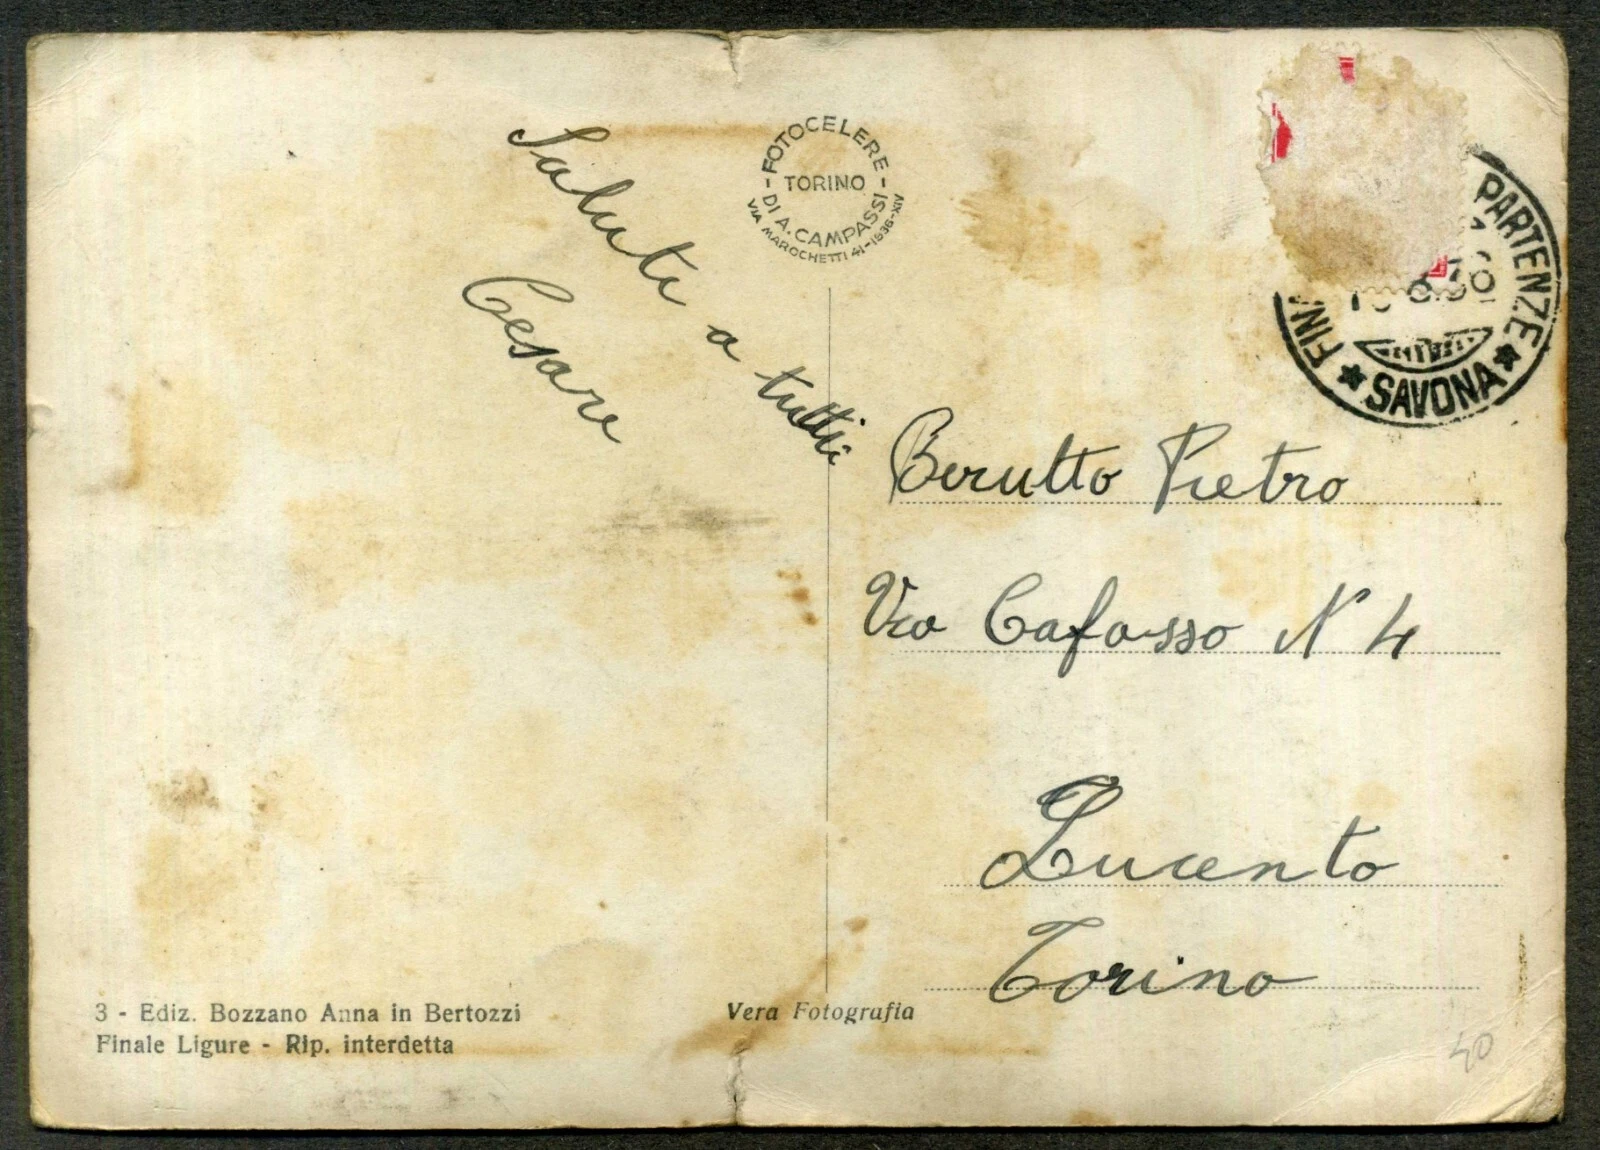 Saluti a tutti
Cesare
FOTOCELERE
TORINO
DI A. CAMPASSI
VIA MAROCHETTI 41-1936-XIV
PARTENZE
SAVONA
Berutto Pietro
Via Cafasso N 4
Lucento
Torino
3 - Ediz. Bozzano Anna in Bertozzi
Finale Ligure - Rip. interdetta
Vera Fotografia
40